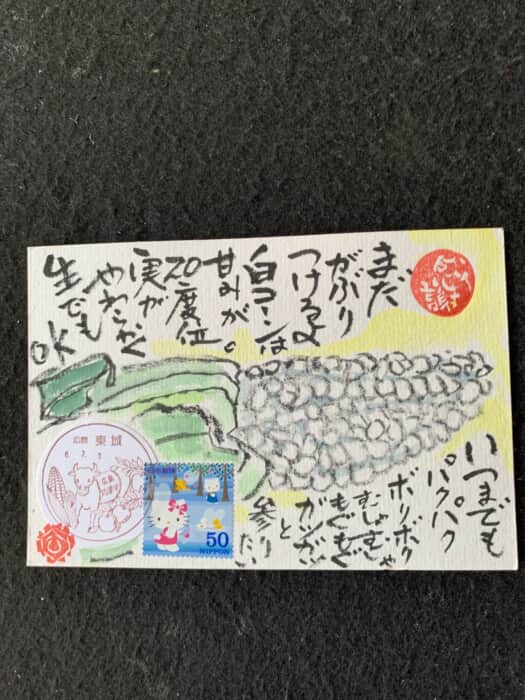 まだ
がぶり
つけるよ
白コーンは
甘みが。
20度位
実が
やわらかく
生でも
OK
いつまでも
パクパク
ボリボリ
むしゃむしゃ
もぐもぐ
ガツガツ
と
参りたい
感謝
広島 東城
6.7.1
50
NIPPON